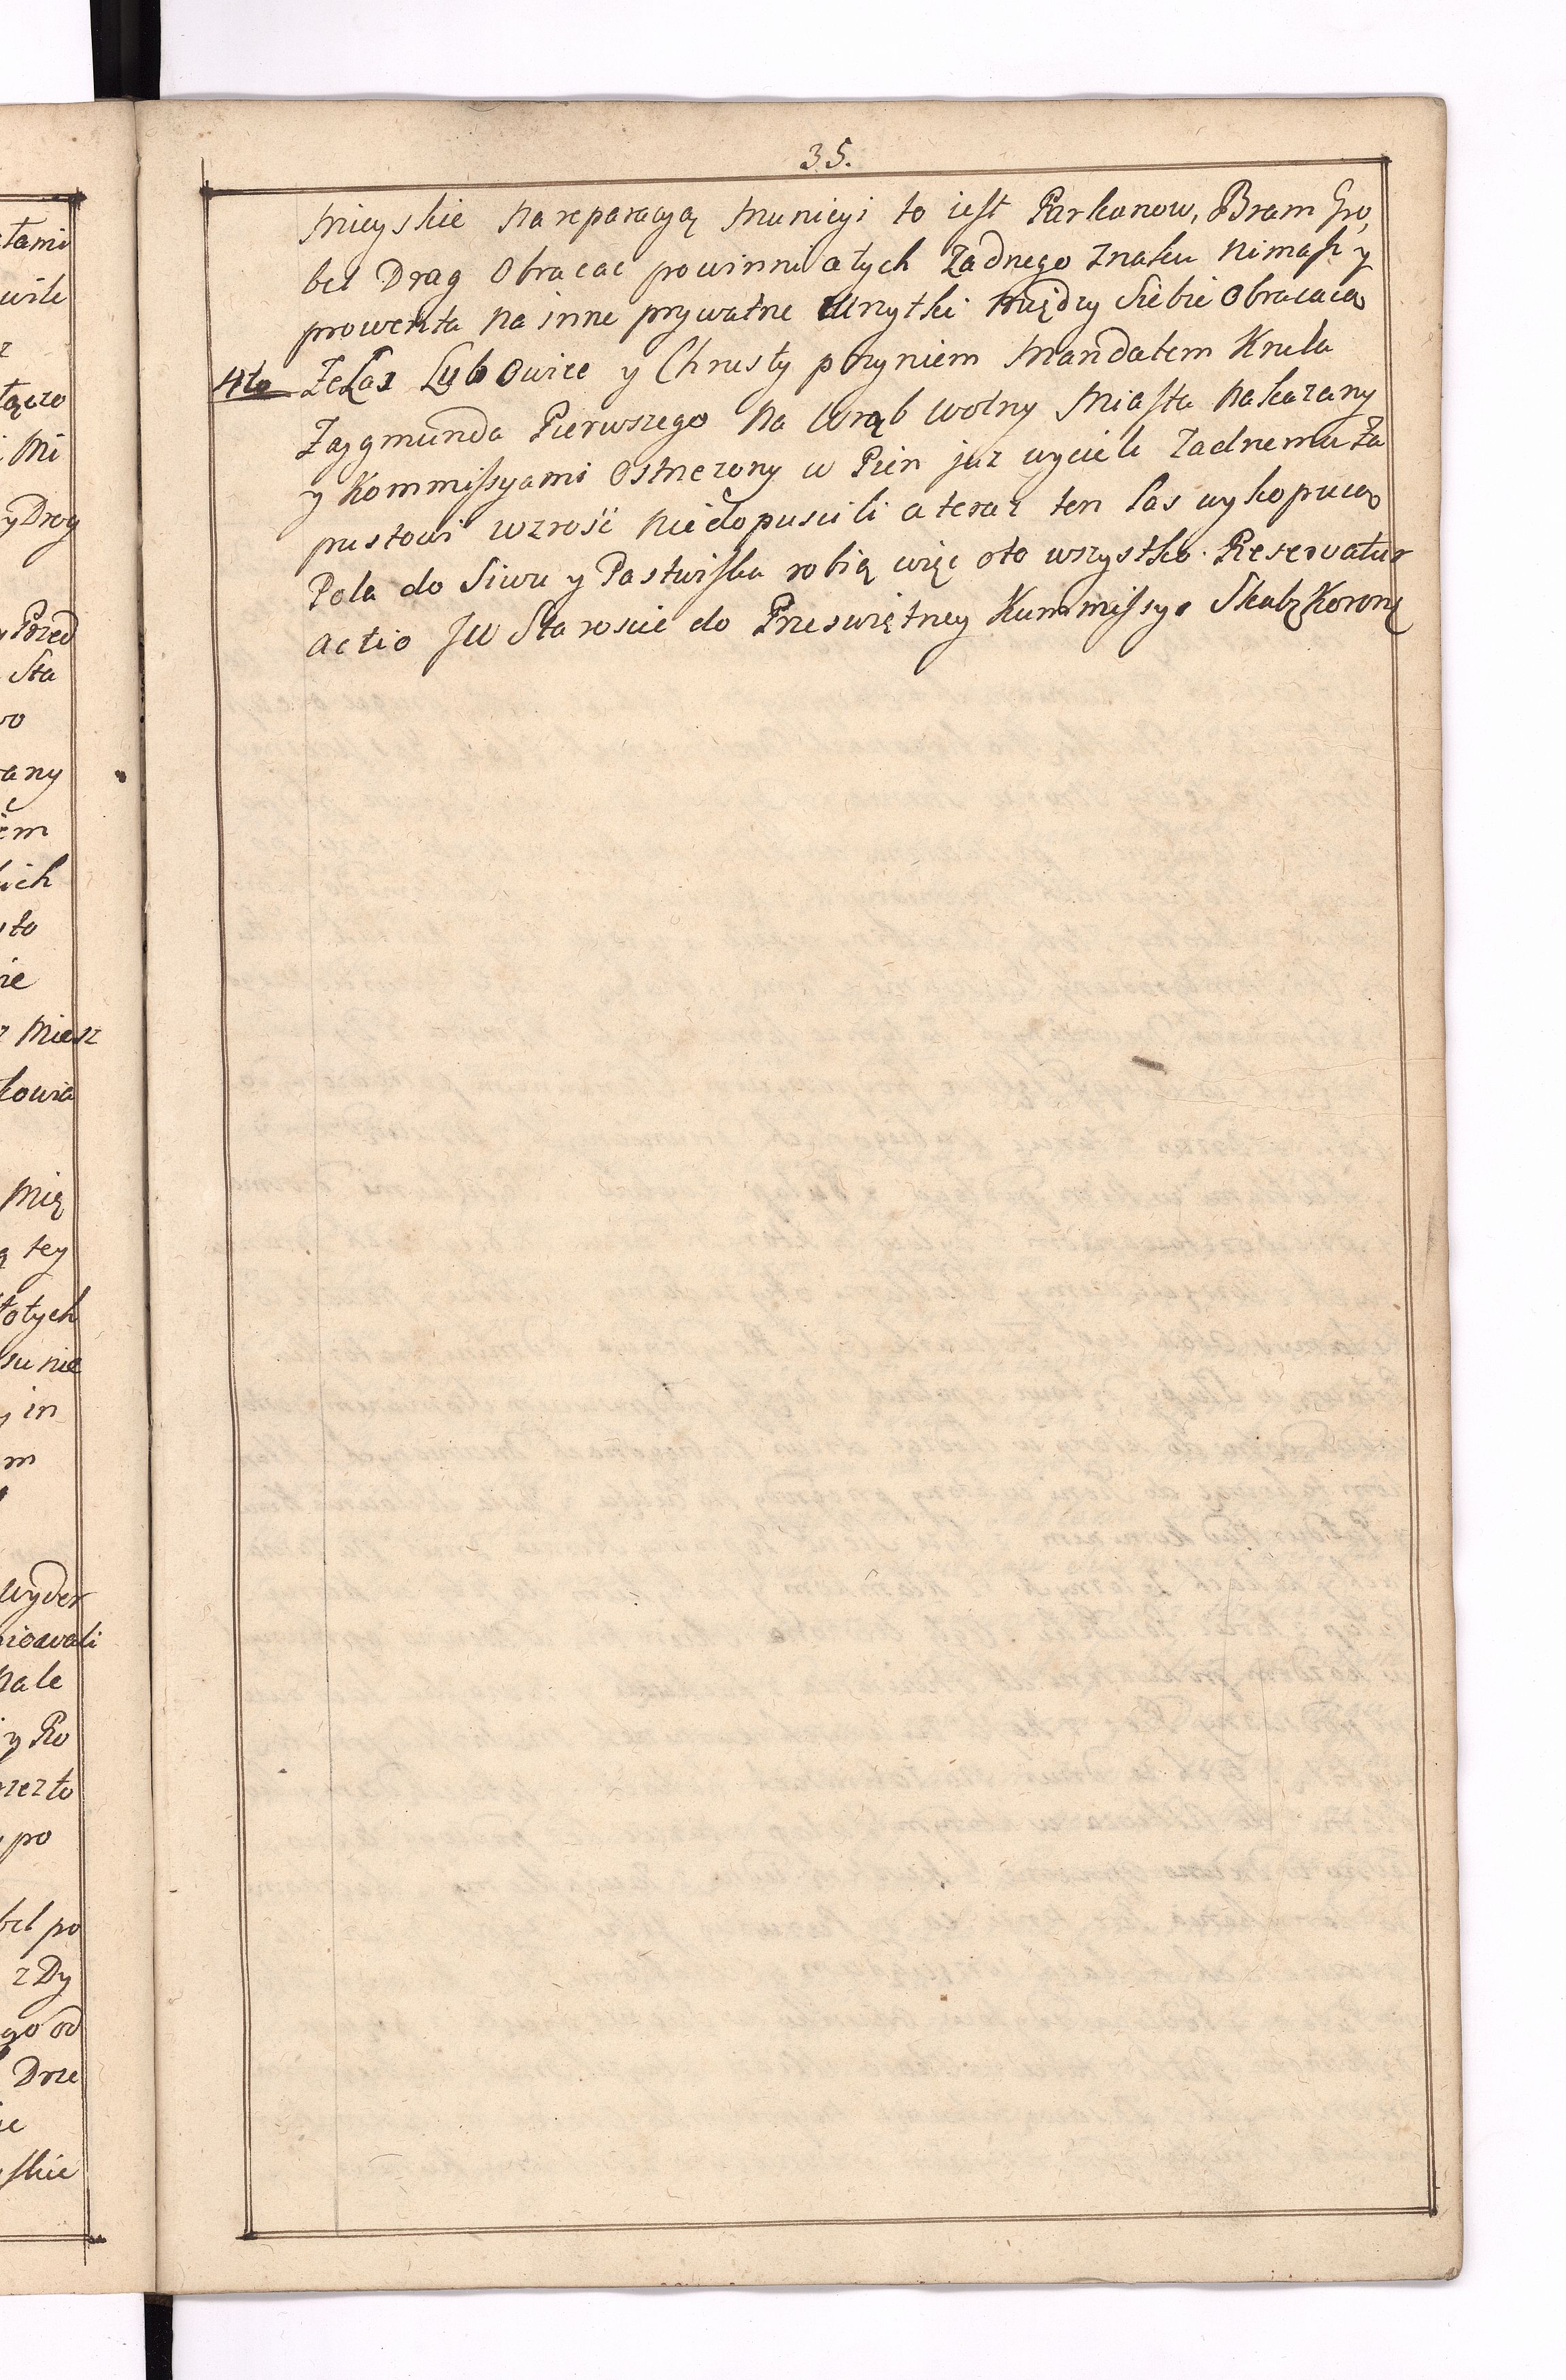 35.
Mieyskie na reparacyą Municyi to iest Parkanow, Bram Gro,
bel Drag Obracac powinni otych Zadnego Znaku nimasz y
prowenta na inne prywatne Uzytki między Siebie Obracaią
4to Ze Las Lubowice y Chrusty przyniem Mandatem Krula
Zaygmunda Pierwszego na Wrąb wolny Miasta nakazany
y Kommissyami Ostrzezony w Pien juz wycieli Zadnemu Za
pustowi wzrość niedopuscili a teraz ten Las wykopuiąc
Pola do Siwu y Pastwiska robią więc oto wszystko Reservatur
actio JW Staroscie do Przeswiętney Kommissyi Skarb Koronę
tami
wili
z
Mi
y Drog
y Przed
Sta
wo
any
em
kich
sto
nie
z Miesz
kowia
Mię
tey
totych
su nie
y in
m
Wyder
niowali
nale
y Ro
rzez to
po
bel po
z Dy
go od
Drze
ie
yskie